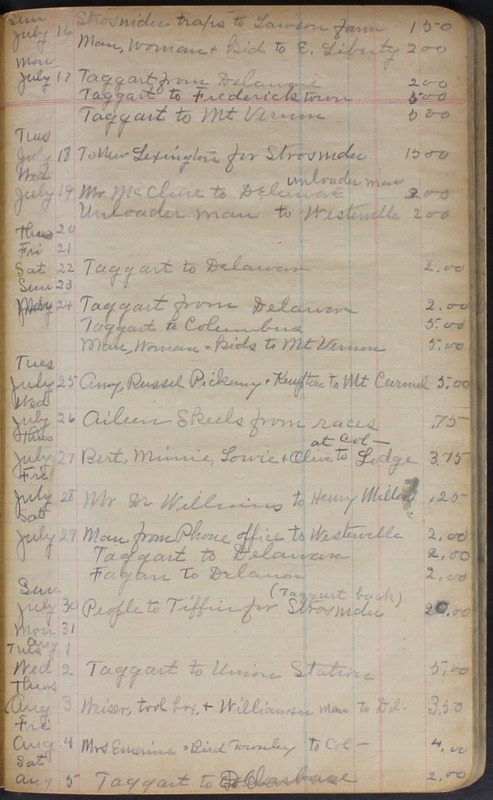 Sun
July 16 Strosnider traps to Lawson farm 1 50
Man, Woman + Kid to E. Liberty 2 00
Mon
July 17 Taggart from Delaware 2 00
Taggart to Fredericktown 5 00
Taggart to Mt Vernon 5 00
Tues
July 18 To New Lexington for Strosnider 15 00
Wed
unloader man
July 19 Mr McClure to Delaware 2 00
Unloader man to Westerville 2 00
Thurs 20
Fri 21
Sat 22 Taggart to Delaware 2.00
Sun 23
24 Taggart from Delaware 2.00
Taggart to Columbus 5.00
Man, Woman + Kids to Mt Vernon 5.00
Tues
July 25 Amy, Russel Pickney + to Mt Carmel 5.00
Wed
July 26 Aileen Skeels from races .75
Thurs
at Col-
July 27 Bert, Minnie, Lowie + Olive to Lodge 3.75
Fri
July 28 Mr Dr Williams to Henry Millers .25
Sat
July 29 Man from Phone office to Westerville 2.00
Taggart to Delaware 2.00
Fagan to Delaware 2.00
Sun
(Taggart back)
July 30 People to Tiffin for Strosnider 20.00
Mon 31
Aug
Tues 1
Wed 2 Taggart to Union Station 5.00
Thurs
Aug 3 Weiser, tool box, + Williamson man to Del- 3.50
Fri
Aug 4 Mrs + Bird Townley to Col- 4.00
Sat
Aug 5 Taggart to 2.00